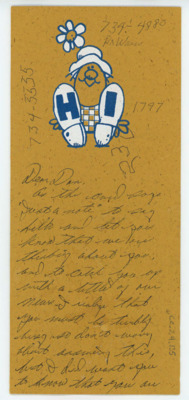 734-4880
734-5535
HI
1797
Dear Dan,
As the card says
"Just a note" to say
hello and let you
know that we are
thinking about you.
and to catch you up
with a little of our
news. I judge that
you must be terribly
busy so don't worry
about answering this,
but I did want you
to know that you are